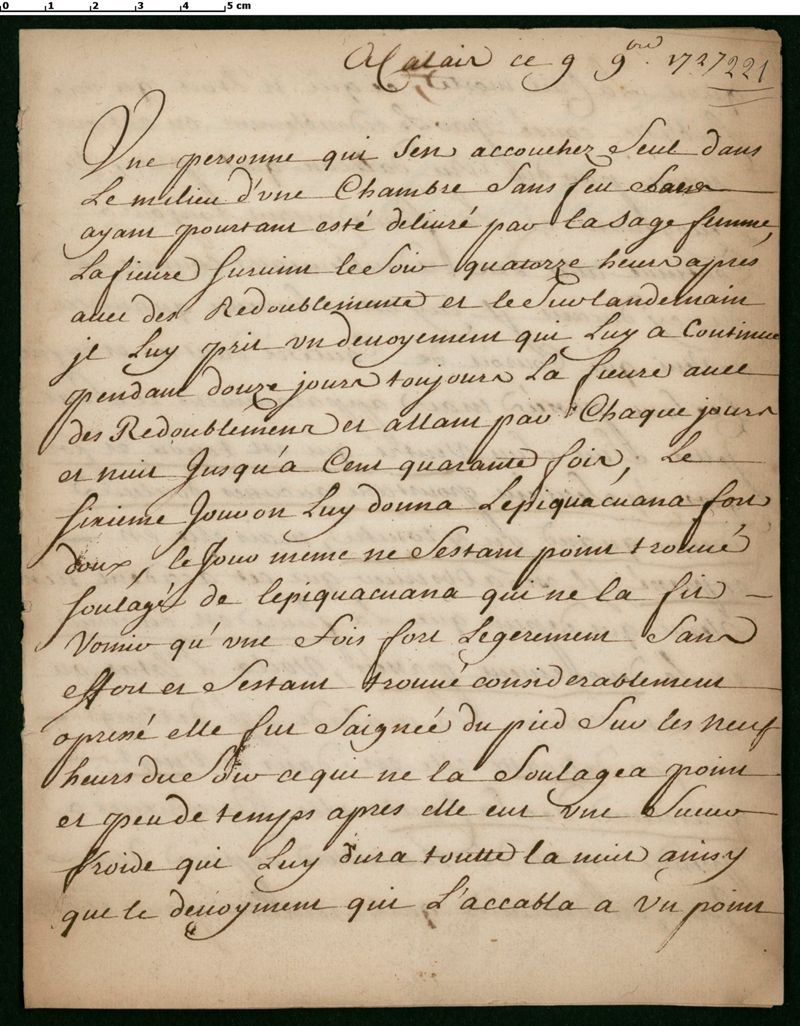 0 1 2 3 4 5 cm
A Calais ce 9 9bre 1727 221
Vne personne qui sen accouchez Seul dans
Le milieu d'vne Chambre Sans feu Sans
ayant pourtant esté deliuré par la Sage femme,
La fieure Suruint le Soir quatorze heurs apres
auec des Redoublements et le Surlandemain
jl Luy prit vn deuoyement qui Luy a Continue
pendant douze jours toujours La fieure auec
des Redoublements et allant par Chaque jours
et nuit Jusqu'a Cent quarante fois, Le
Sixieme Jour on Luy donna Lepiquacuana fort
doux, le Jour meme ne Sestant point trouué
Soulagé de lepiquacuana qui ne la fit
Vomir qu'vne Fois fort Legerement Sans
effort et Sestant trouué considerablement
opressé elle fut Saignée du pied Sur les neuf
heurs du Soir ce qui ne la Soulagea point
et peu de temps apres elle eut vne Sueur
froide qui Luy dura toutte la nuit ainsy
que le deuoyment qui L'accabla a Vn point